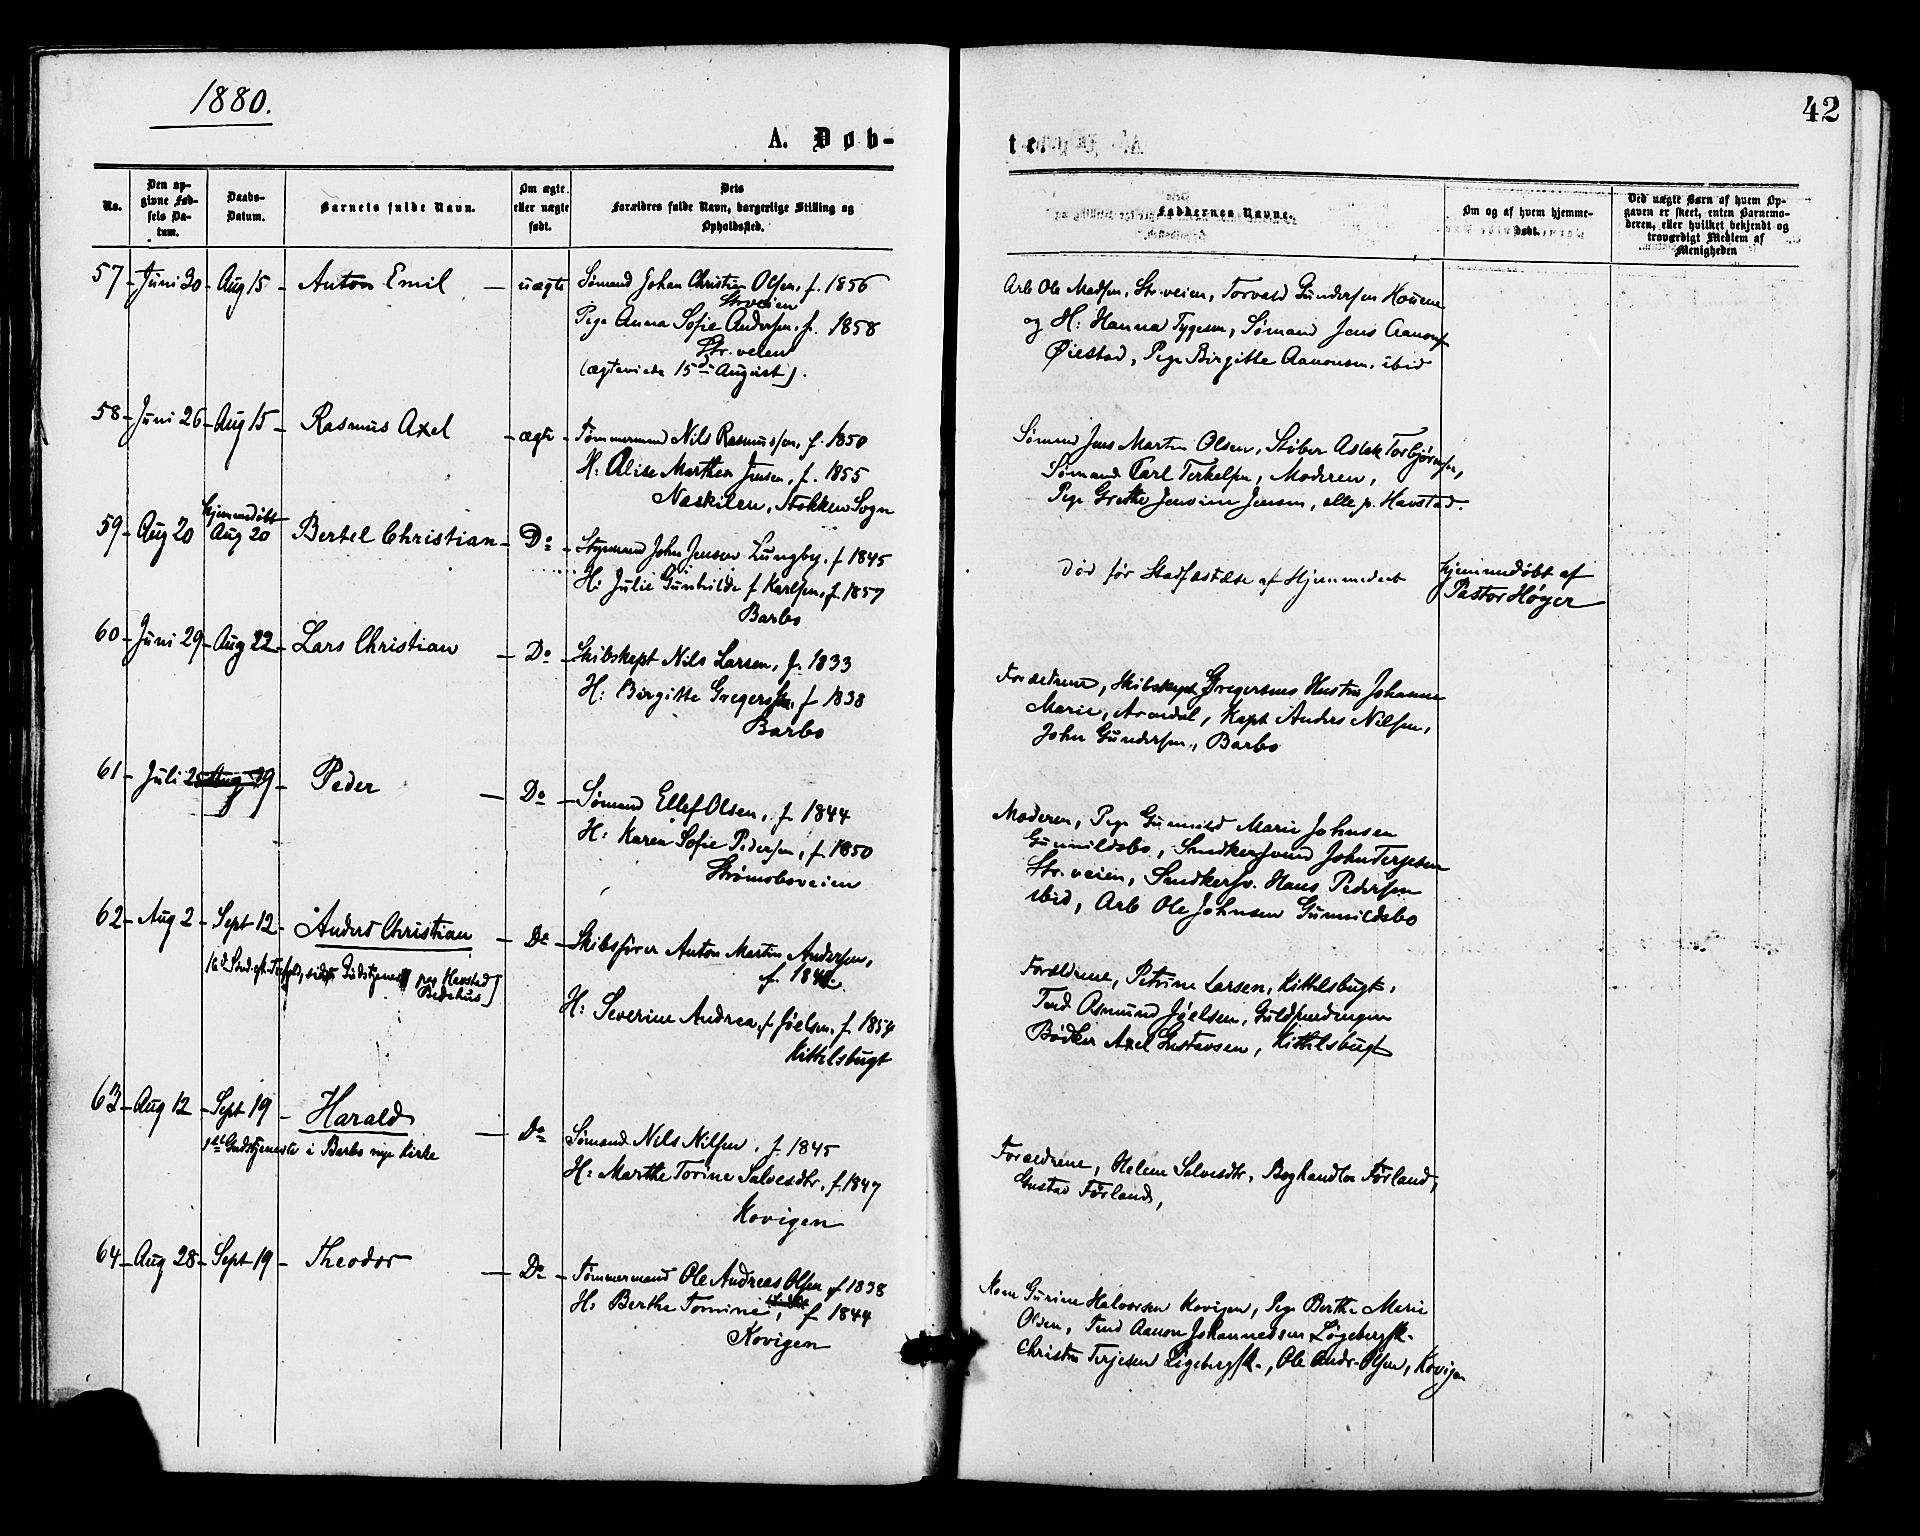 1880.
42
A. Døb-
te
No.
Den op-
givne Fød-
sels Da-
tum.
Daabs-
Datum.
Barnets fulde Navn.
Om ægte
eller uægte
født.
Dets
Forældres fulde Navn, borgerlige Stilling og
Opholdssted.
Faddernes Navne.
Om og af hvem hjemme-
døbt.
Ved uægte Børn af hvem Op-
gaven er skeet, enten Barnemo-
deren, eller hvilket bekjendt og
troværdigt Medlem af
Menigheden
57 Juni 30 Aug 15 Anton Emil uægte Sømand Johan Christian Olsen, f. 1856
Str.veien
Pige Anna Sofie Andersen, f. 1858
Str.veien
(ægteviede 15d August).
Arb Ole Madsen, Str.veien, Torvald Gundersen
og H: Hanna Tygesen, Sømand Jens Aanons
Øiestad, Pige Birgitte Aanonsen, ibid
58 Juni 26 Aug 15 Rasmus Axel ægte Tømmermand Nils Rasmussen, f. 1850
H: Alise Marthea Jensen, f. 1855
Neskilen, Stokken Sogn
Sømand Jens Martin Olsen, Støber Aslak Torbjørnsen,
Sømand Carl Terkelsen, Moderen,
Pige Grethe Jensine Jensen, alle p. Havstad.
59 Aug 20 hjemmedøbt
Aug 20 Bertel Christian Do Styrmand John Jensen Lungby, f 1845
H: Julie Gunhilde f Karlsen, f. 1857
Barbo
Død før Stadfæstelse af Hjemmedaab
hjemmedøbt af
Pastor Høyer
60 Juni 29 Aug 22 Lars Christian Do Skibskapt Nils Larsen, f. 1833
H: Birgitte Gregersen, f 1838
Barbo
Forældrene, Skibskapt Gregersens Hustru Johanne
Marie, Arendal, Kapt Anders Nilsen,
John Gundersen, Barbo
61 Juli 25 Aug 29 Peder Do Sømand Ellef Olsen, f 1844
H: Karen Sofie Pedersen, f. 1850
Strømsboveien
Moderen, Pige Gunnild Marie Johnsen
Gunnildsbo, Snedkersvend John Terjesen
Str.veien, Snedkersv. Hans Pedersen
ibid, Arb Ole Johnsen Gunnildsbo
62 Aug 2 Sept 12 Anders Christian Do Skibsfører Anton Martin Andersen,
f. 184
16d Sønd. eft. Trefold, sidste Gudstjeneste paa Havstad
Bedehus]
H: Severine Andrea, f Jøelsen, f. 1854
Kittelsbugt
Forældrene, Petrine Larsen, Kittelsbugt,
Tmd Asmund Jøelsen,
Bødker Axel Gustavsen, Kittelsbugt
63 Aug 12 Sept 19 Harald Do Sømand Nils Nilsen, f. 1845
1ste Gudstjeneste i Barbo nye Kirke
H: Marthe Torine Salvesdtr, f. 1847
Kovigen
Forældrene, Helene Salvesdtr, Boghandler Førland,
Gustav Førland,
64 Aug 28 Sept 19 Theodor Do Tømmermand Ole Andreas Olsen f 1838
H: Berthe Tomine, f 1844
Kovigen
Kone Gurine Halvorsen Kovigen, Pige Berthe Marie
Olsen, Tmd Aanon Johannessen Løgebergsk.
Christen Terjesen Løgebergsk., Ole Andr. Olsen, Kovigen